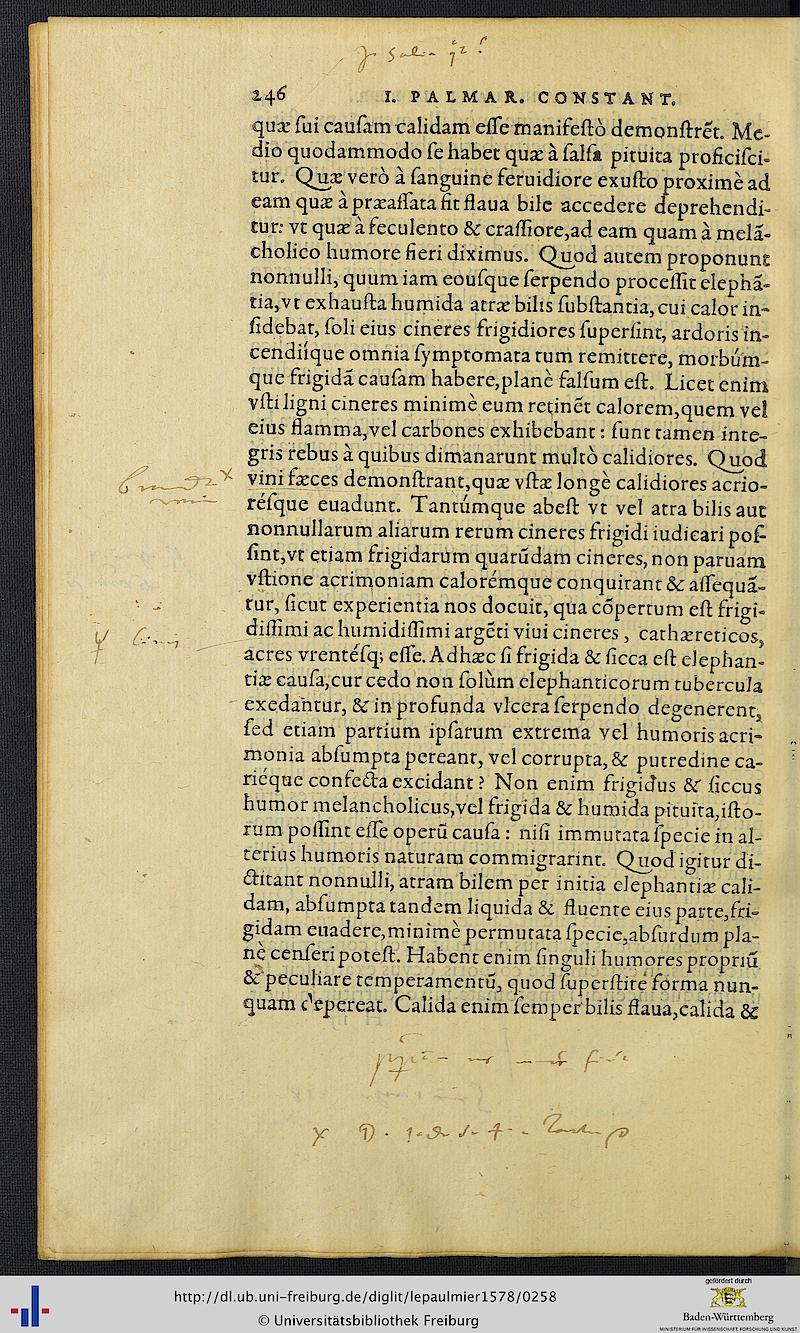 246 I. PALMAR. CONSTANT.
quæ ſui cauſam calidam eſſe manifeſtò demonſtrẽt. Me-
dio quodammodo ſe habet quæ à falſa pituita proficiſci-
tur. Quæ verò à ſanguine feruidiore exuſto proximè ad
eam quæ à præaſſata fit flaua bile accedere deprehendi-
tur: vt quæ à feculento & craſſiore,ad eam quam à melã-
cholico humore fieri diximus. Quod autem proponunt
nonnulli, quum iam eouſque ſerpendo proceſſit elephã-
tia,vt exhauſta humida atræ bilis ſubſtantia, cui calor in-
ſidebat, ſoli eius cineres frigidiores ſuperſint, ardoris in-
cendiíque omnia ſymptomata tum remittere, morbúm-
que frigidã cauſam habere,planè falſum eſt. Licet enim
vſti ligni cineres minimè eum retinẽt calorem,quem vel
eius flamma,vel carbones exhibebant: ſunt tamen inte-
gris rebus à quibus dimanarunt multò calidiores. Quod
vini fæces demonſtrant,quæ vſtæ longè calidiores acrio-
réſque euadunt. Tantúmque abeſt vt vel atra bilis aut
nonnullarum aliarum rerum cineres frigidi iudicari poſ-
ſint,vt etiam frigidarum quarũdam cineres, non paruam
vſtione acrimoniam calorémque conquirant & aſſequã-
tur, ſicut experientia nos docuit, qua cõpertum eſt frigi-
diſſimi ac humidiſſimi argẽti viui cineres, cathæreticos,
acres vrentéſq; eſſe. Adhæc ſi frigida & ſicca eſt elephan-
tiæ cauſa,cur cedo non ſolùm elephanticorum tubercula
exedantur, & in profunda vlcera ſerpendo degenerent,
ſed etiam partium ipſarum extrema vel humoris acri-
monia abſumpta pereant, vel corrupta, & putredine ca-
riéque confecta excidant? Non enim frigidus & ſiccus
humor melancholicus,vel frigida & humida pituita,iſto-
rum poſſint eſſe operũ cauſa: niſi immutata ſpecie in al-
terius humoris naturam commigrarint. Quod igitur di-
ctitant nonnulli, atram bilem per initia elephantiæ cali-
dam, abſumpta tandem liquida & fluente eius parte,fri-
gidam euadere,minimè permutata ſpecie,abſurdum pla-
nè cenſeri poteſt. Habent enim ſinguli humores propriũ
& peculiare temperamentũ, quod ſuperſtite forma nun-
quam depereat. Calida enim ſemper bilis flaua,calida &
http://dl.ub.uni-freiburg.de/diglit/lepaulmier1578/0258
© Universitätsbibliothek Freiburg
gefördert durch
Baden-Württemberg
MINISTERIUM FÜR WISSENSCHAFT, FORSCHUNG UND KUNST